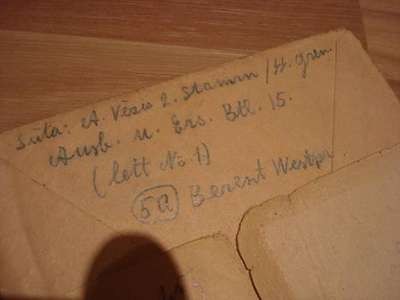 Sūta: A. Vēzis 2. Stamm / H. Gren.
Ausb. u. Ers. Btl. 15.
(lett No. 1)
5a Berent Westpr